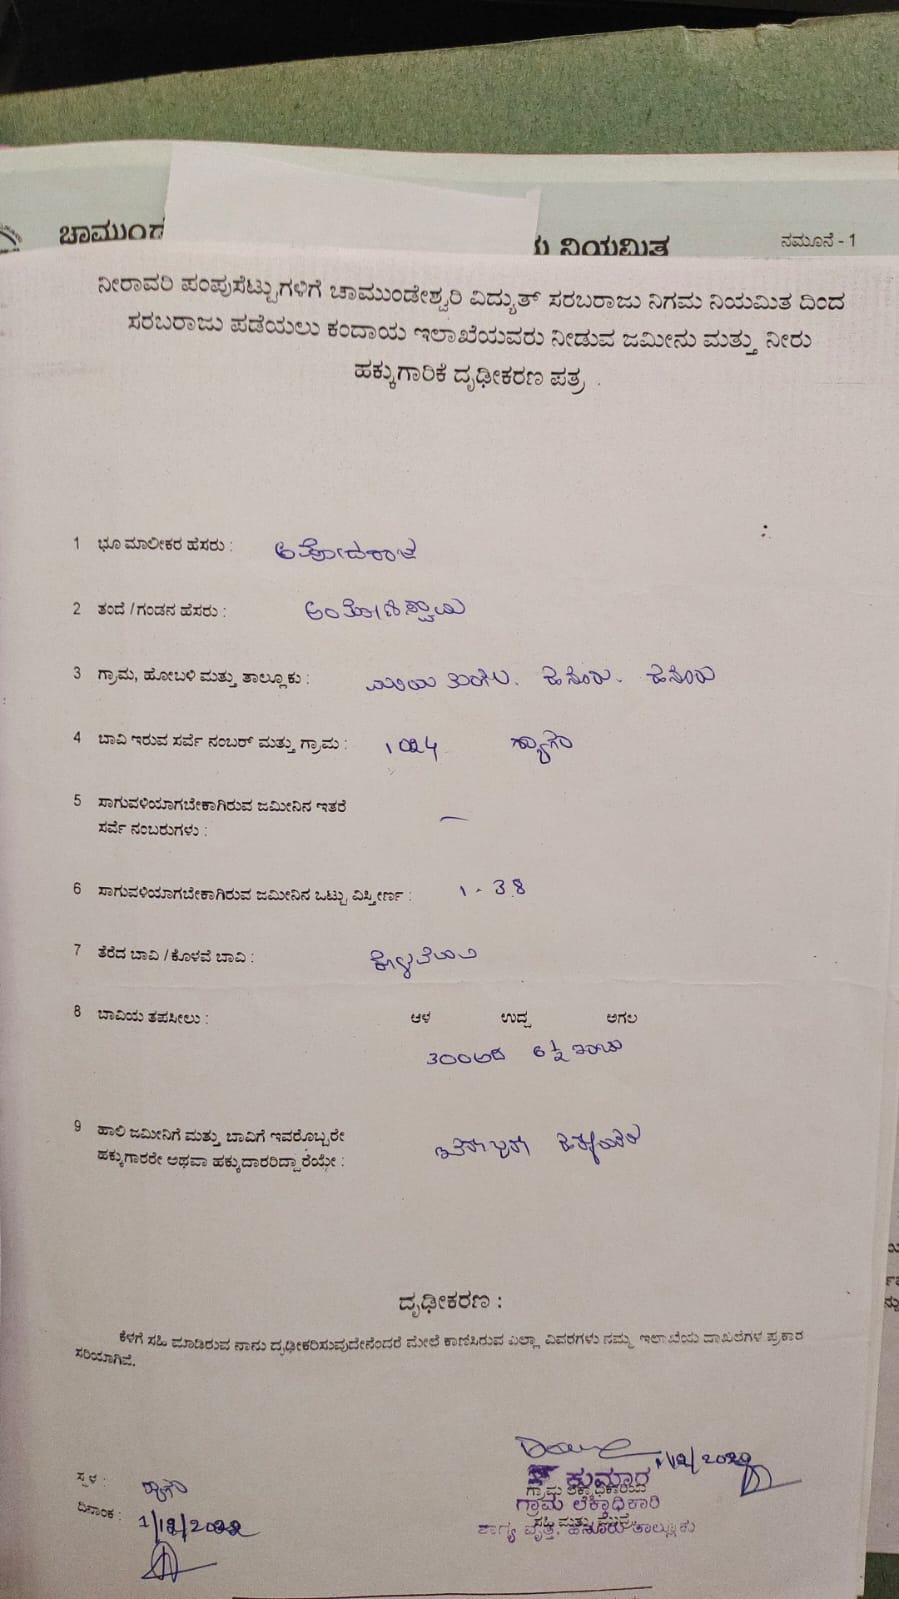 ಚಾಮುಂಡ
ನಿಯಮಿತ
ನಮೂನೆ - 1
ನೀರಾವರಿ ಪಂಪುಸೆಟ್ಟುಗಳಿಗೆ ಚಾಮುಂಡೇಶ್ವರಿ ವಿದ್ಯುತ್ ಸರಬರಾಜು ನಿಗಮ ನಿಯಮಿತ ದಿಂದ
ಸರಬರಾಜು ಪಡೆಯಲು ಕಂದಾಯ ಇಲಾಖೆಯವರು ನೀಡುವ ಜಮೀನು ಮತ್ತು ನೀರು
ಹಕ್ಕುಗಾರಿಕೆ ದೃಢೀಕರಣ ಪತ್ರ .
1 ಭೂ ಮಾಲೀಕರ ಹೆಸರು :
2 ತಂದೆ / ಗಂಡನ ಹೆಸರು : ಅಂತೋಣಿಸ್ವಾಮಿ
3 ಗ್ರಾಮ, ಹೋಬಳಿ ಮತ್ತು ತಾಲ್ಲೂಕು : ಹನೂರು. ಹನೂರು
4 ಬಾವಿ ಇರುವ ಸರ್ವೆ ನಂಬರ್ ಮತ್ತು ಗ್ರಾಮ :
5 ಸಾಗುವಳಿಯಾಗಬೇಕಾಗಿರುವ ಜಮೀನಿನ ಇತರೆ
ಸರ್ವೆ ನಂಬರುಗಳು : —
6 ಸಾಗುವಳಿಯಾಗಬೇಕಾಗಿರುವ ಜಮೀನಿನ ಒಟ್ಟು ವಿಸ್ತೀರ್ಣ : 1 - 38
7 ತೆರೆದ ಬಾವಿ / ಕೊಳವೆ ಬಾವಿ :
8 ಬಾವಿಯ ತಪಸೀಲು : ಆಳ ಉದ್ದ ಅಗಲ
300ಅಡಿ 6 ½
9 ಹಾಲಿ ಜಮೀನಿಗೆ ಮತ್ತು ಬಾವಿಗೆ ಇವರೊಬ್ಬರೇ
ಹಕ್ಕುಗಾರರೇ ಅಥವಾ ಹಕ್ಕುದಾರರಿದ್ದಾರೆಯೇ :
ದೃಢೀಕರಣ :
ಕೆಳಗೆ ಸಹಿ ಮಾಡಿರುವ ನಾನು ದೃಢೀಕರಿಸುವುದೇನೆಂದರೆ ಮೇಲೆ ಕಾಣಿಸಿರುವ ಎಲ್ಲಾ ವಿವರಗಳು ನಮ್ಮ ಇಲಾಖೆಯ ದಾಖಲೆಗಳ ಪ್ರಕಾರ
ಸರಿಯಾಗಿವೆ.
1/12/2022
ಕುಮಾರ
ಸ್ಥಳ :
ಗ್ರಾಮ ಲೆಕ್ಕಾಧಿಕಾರಿ
ದಿನಾಂಕ : 1/12/2022
ಶಾಗ್ಯ ವೃತ್ತ, ಹನೂರು ತಾಲ್ಲೂಕು